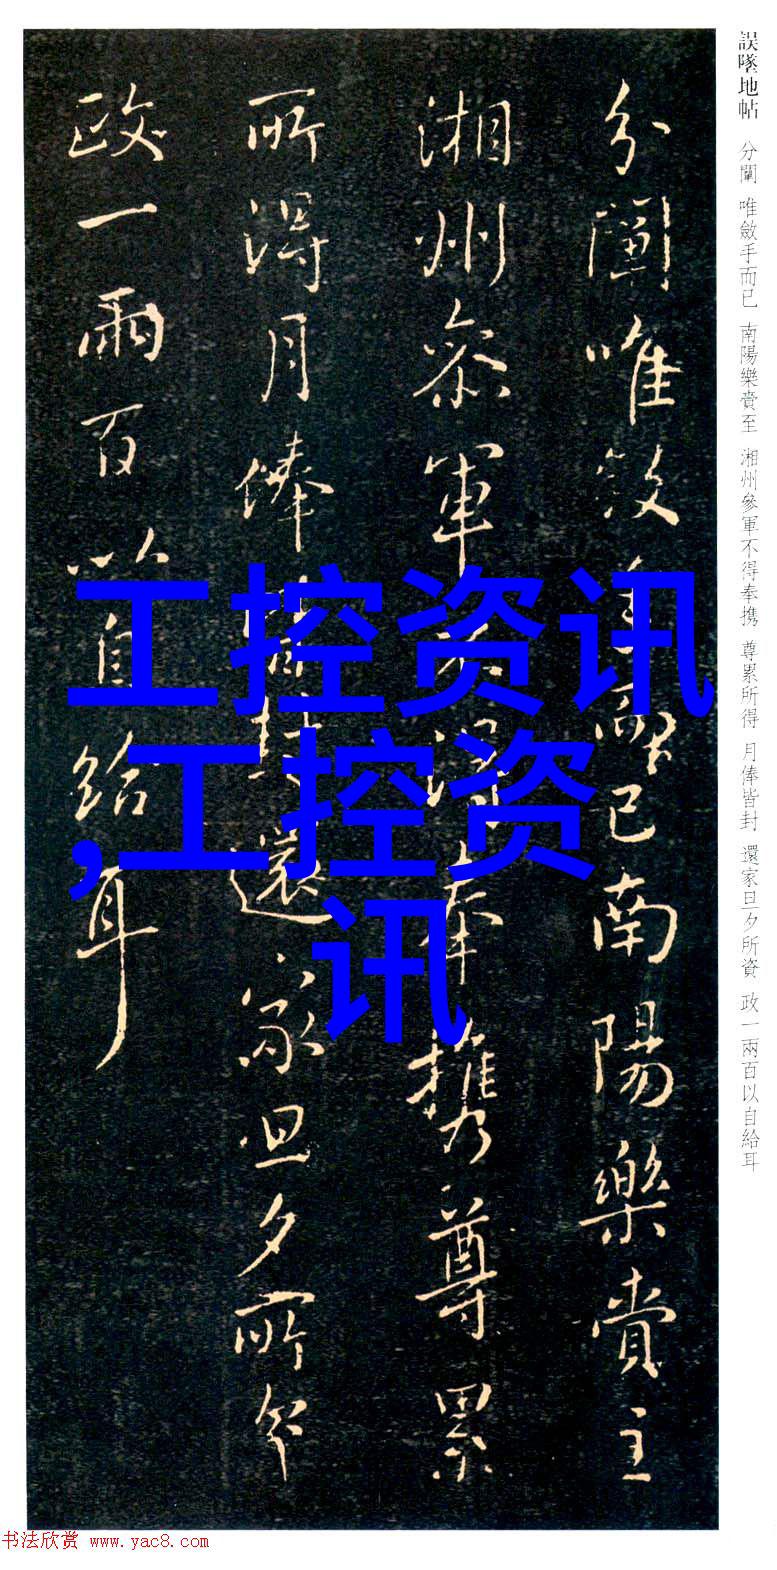 誤墜地帖 分闡 唯斂手而已 南陽樂賁至 湘州參軍不得奉携 尊累所得 月俸皆封 還家旦夕所資 政一兩百以自給耳
分闡唯斂手而已南陽樂賁至
湘州參軍不得奉携尊累
所得月俸皆封還家旦夕所資
政一兩百以自給耳
工控资讯
,工控资
讯
书法欣赏 www.yac8.com